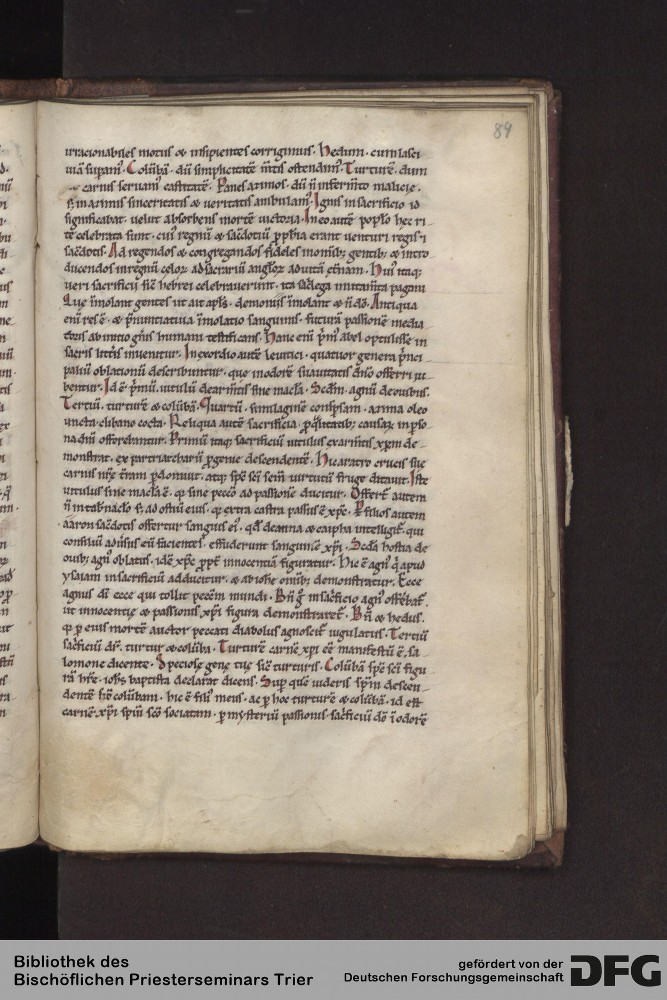 84
irracionabiles motus & insipientes corrigimus. Hedum. cum lasci
uiā supam᷒. Colūbā. dū simplicitatē m̄tis ostendim᷒. Turturē. dum
carnis seruam᷒ castitatē. Panes azimos. dū n̄ inferm̄to malicie.
s; in azimis sinceritatis & ueritatis ambulam᷒. Ignis in sacrificio id
significabat. uelut absorbens mortē uictoria. In eo autē poplo hec ri
tē celebrata sunt. cui᷒ regnū & sacdotiū ꝓphia erant uenturi regis
sacdotis. Ad regendos & congregandos fideles
ducendos in regnū celoꝝ ad sacrariū angloꝝ ad uitā et̄nam. Hui᷒ itaq;
ueri sacrificii hebrei celebrauerunt. ita sac̄lega pagani
Que īmolant gentes ut ait apl̄s. demoniis īmolant & n̄ dō. Antiqua
eni res ē. & p̄nuntiatiua īmolatio sanguinis. futurā passionē media
toris ab initio gn̄is humani testificans. Hanc eni p̄m᷒ abel optulisse in
sacris litt̄is inuenitur. In exordio autē leuitici. quatuor genera p̄nci
paliū oblationū describuntur. que in odorē suauitatis dn̄o offerri iu
bentur. Id ē p̄mū. uitulū de arm̄tis sine macla. Scdm. agnū de ouibus.
Terciū. turturē & colūbā. Quartū. similaginē consp̄sam. azima oleo
uncta. clibano cocta. Reliqua autē sacrificia. ꝓ q̄litatib; causaꝝ
offerebantur. Primū itaq; sacrificiū uitulus ex arm̄tis xp̄m de
monstrat. ex patriarcharū ꝓgenie descendentē. Hic aratro crucis sue
carnis nr̄e t̄ram ꝑdomuit. atq; sp̄s sc̄i sem̄ uirtutū fruge ditauit. Iste
uitulus sine macla ē. q̄ sine peccō ad passionē ducitur. Offert᷑ autem
n̄ in tab̄naclo s; ad ostiū eius. q̄ extra castra passus ē xp̄c. P̄ filios autem
aaron sacdotis offertur sanguis ei᷒. q̄d de anna & caipha intelligit᷑. qui
consiliū adūsus eū facientes. effuderunt sanguinē xp̄i. Scda hostia de
ouib; agn᷒ oblatus. idē xp̄c ꝓpt̄ innocentiā figuratur. Hic ē agn᷒ q̄ apud
ysaiam in sacrificiū adducitur. & ab iohe demonstratur. Ecce
agnus dī ecce qui tollit peccm mundi. Bn̄ ḡ in sac̄ficio agn᷒ off̄ebat᷑.
ut innocentie & passionis xp̄i figura demonstraret᷑. Bn̄ & hedus.
q̄ ꝑ eius mortē auctor peccati diabolus agnoscit᷑ iugulatus. Terciū
sac̄ficiū dr̄. turtur & colūba. Turturē carnē xp̄i eē manifestū ē. sa
lomone dicente. Speciose gene tue sic̄ turturis. Colūbā sp̄c sc̄i figu
rā hr̄e. ioh̄s baptista declarat dicens. Sup quē uideris sp̄m descen
dentē sic̄ colūbam. hic ē fili᷒ meus. ac ꝑ hoc turturē & colūbā. id est
carnē xp̄i sp̄ui sc̄o sociatam. ꝑ mysteriū passionis sac̄ficiū dō ī odorē
Bibliothek des
Bischöflichen Priesterseminars Trier
gefördert von der
Deutschen Forschungsgemeinschaft
DFG